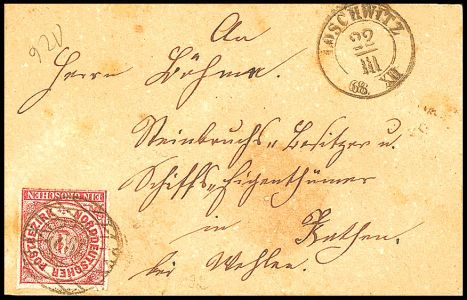 920
An
LOSCHWITZ
22
III
68
XII
Herrn Böhme.
Steinbruchs-Besitzer u.
Schiffs-Eigenthümer
in
Rathen.
bei Wehlen.
EIN GROSCHEN
NORDDEUTSCHER POSTBEZIRK